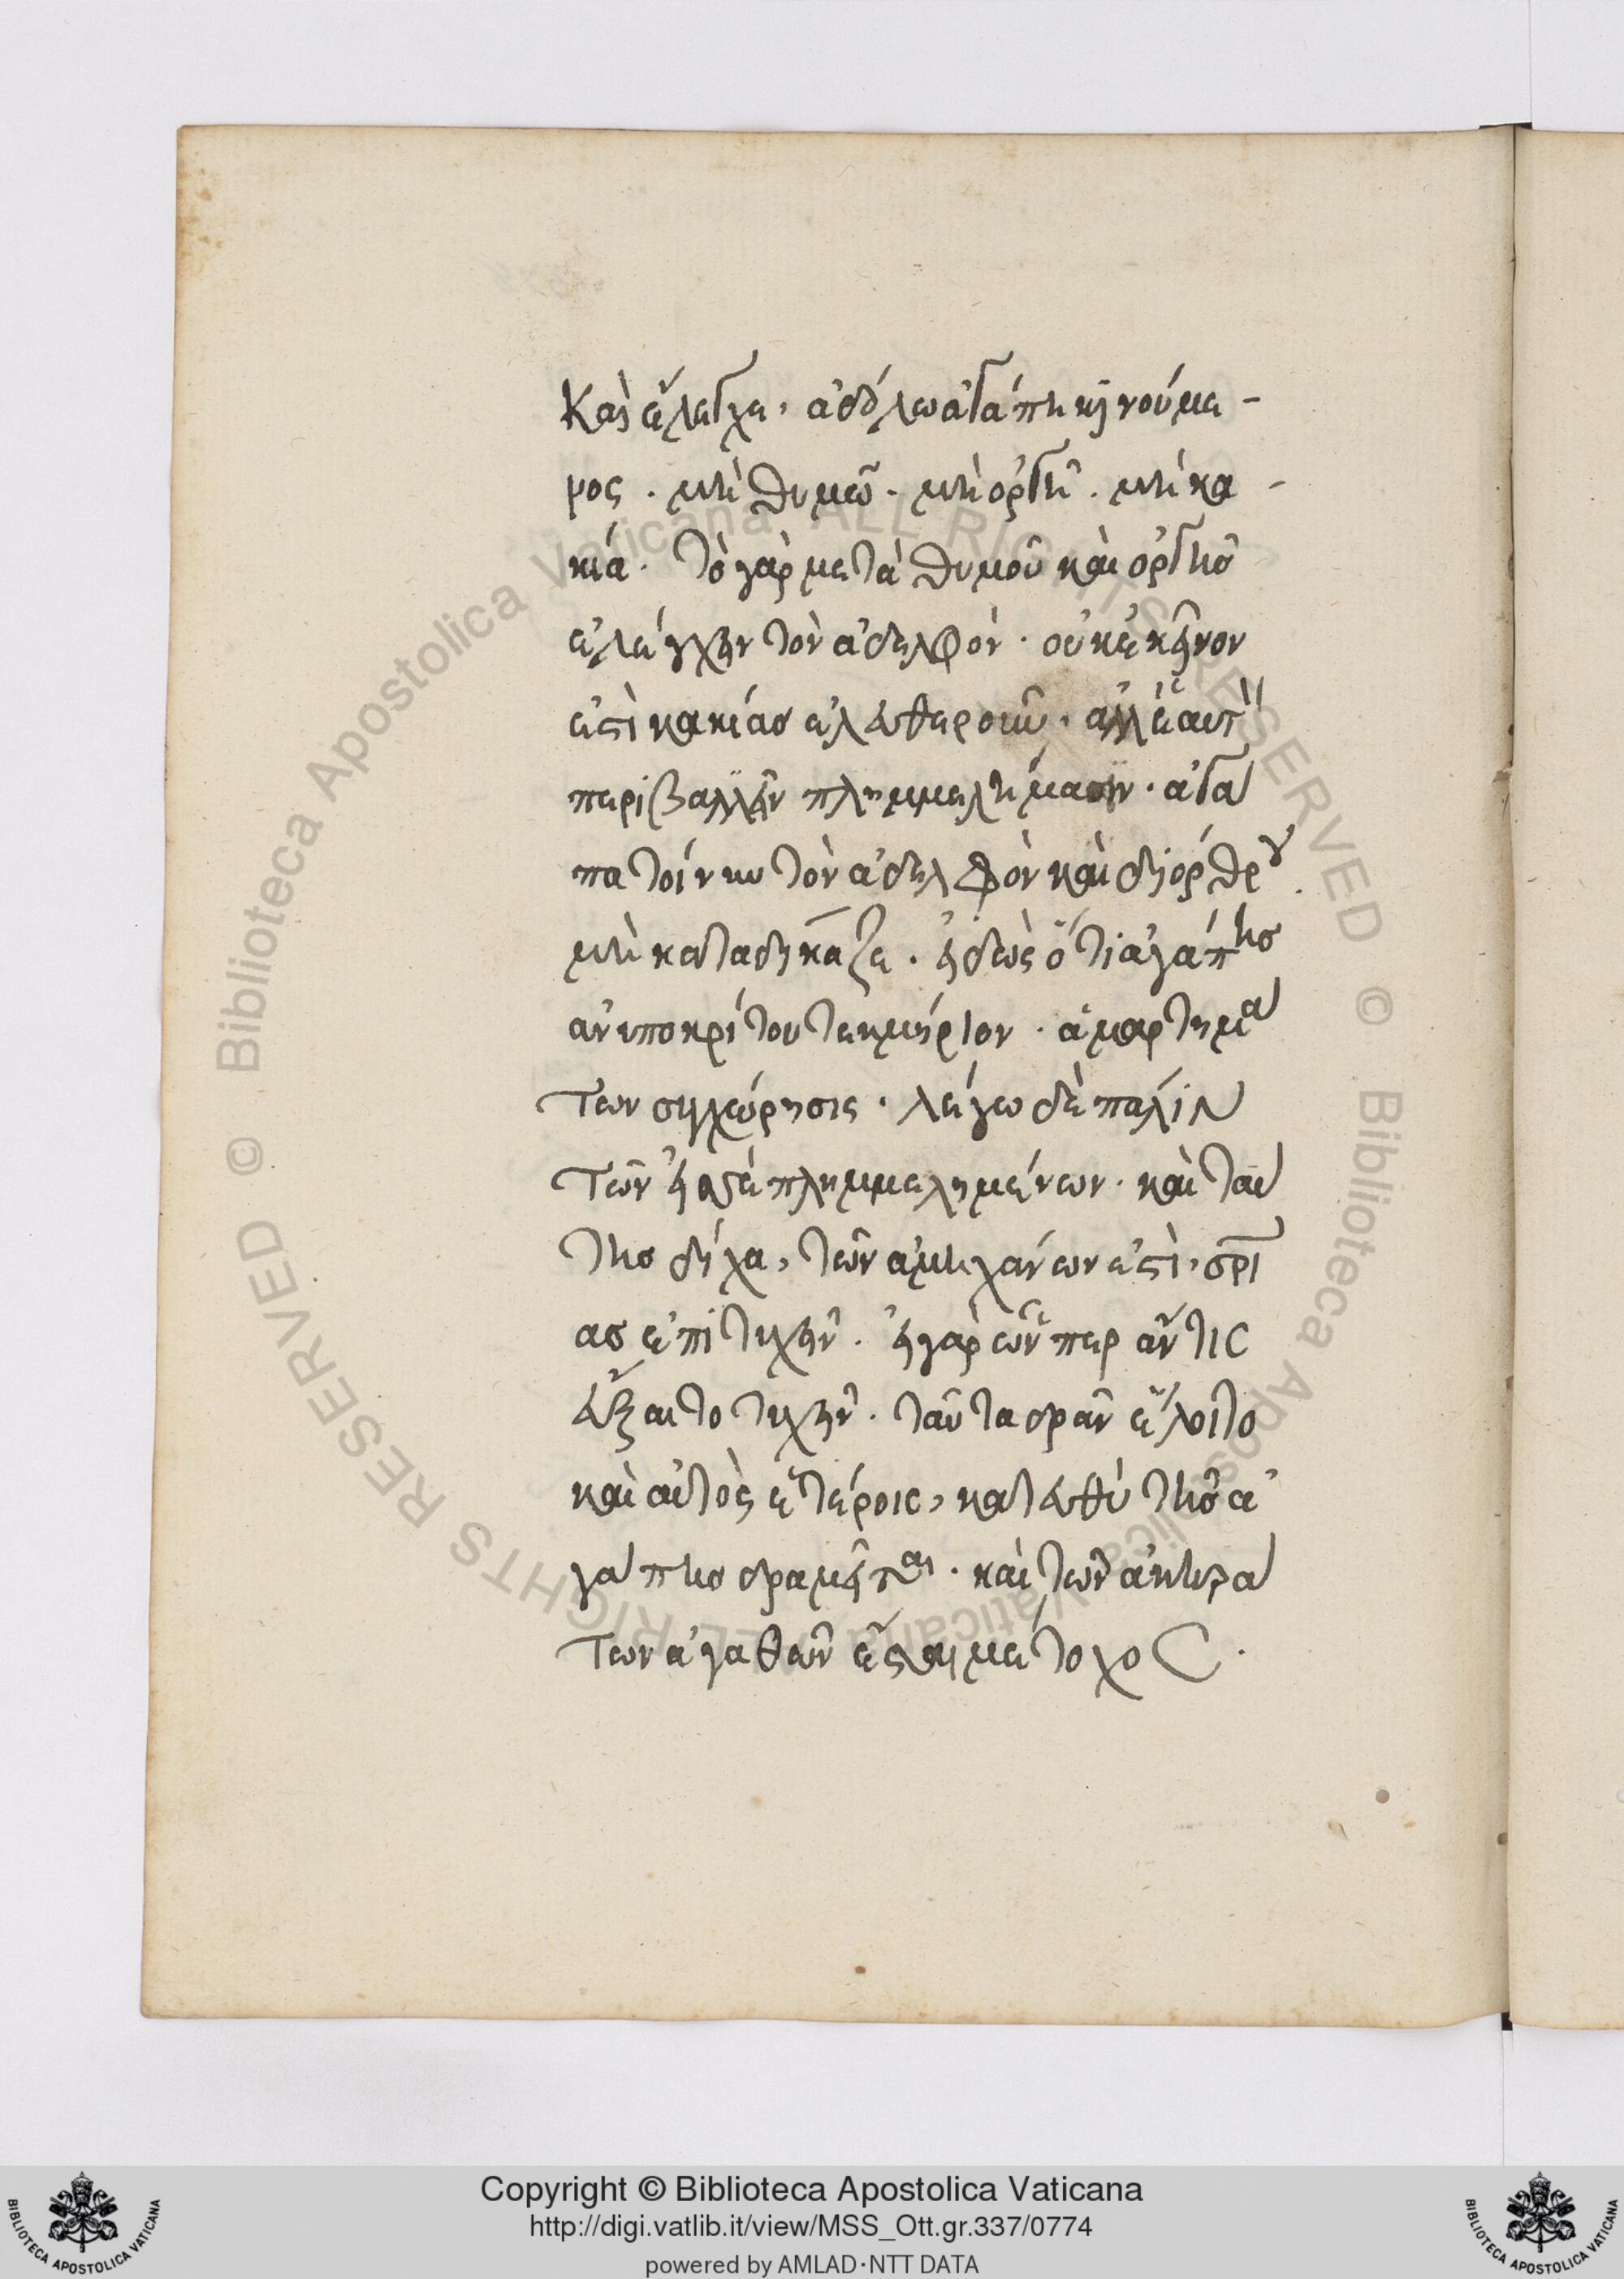 Καὶ ἔλεγχε, ἀδόλω ἀγάπη κινούμε-
νος. μὴ θυμῶ. μὴ ὀργῆ. μὴ κα-
κία. τὸ γὰρ μετὰ θυμοῦ καὶ ὀργῆσ
ἐλέγχειν τὸν ἀδελφὸν. οὐκ ἐκεῖνον
ἐστὶ κακίασ ἐλευθεροῦν. ἀλλ' ἑαυτὸν
περιβαλλεῖν πλημμελήμασιν. ἀγα
πα τοίνυν τὸν ἀδελφὸν καὶ διόρθου.
μὴ καταδίκαζε. εἰδὼς ὅτι ἀγάπησ
ἀνυποκρίτου τεκμήριον. ἁμαρτημα
των συγχώρησις. λέγω δὲ πάλιν
τῶν εἰς σὲ πλημμελημένων. καὶ ταύ
τησ δίχα, τῶν ἀμηχάνων ἐστὶ, σρι
ασ ἐπιτυχεῖν. εἰ γὰρ ὧν περ ἄν τις
εὔξαιτο τυχεῖν. ταῦτα δρᾶν ἕλοιτο
καὶ αὐτὸς ἑτέροις, κατευθὺ τῆσ ἀ
γαπησ δραμεῖται. καὶ τῶν ἀκηρα
των ἀγαθῶν ἔσται μέτοχος.
Copyright © Biblioteca Apostolica Vaticana
http://digi.vatlib.it/view/MSS_Ott.gr.337/0774
powered by AMLAD·NTT DATA
BIBLIOTECA APOSTOLICA VATICANA
BIBLIOTECA APOSTOLICA VATICANA
© Biblioteca Apostolica Vaticana ALL RIGHTS RESERVED
© Biblioteca Apostolica Vaticana ALL RIGHTS RESERVED